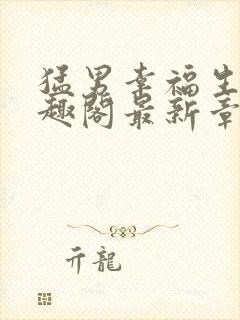 猛男幸福生
趣阁最新章
亓龍